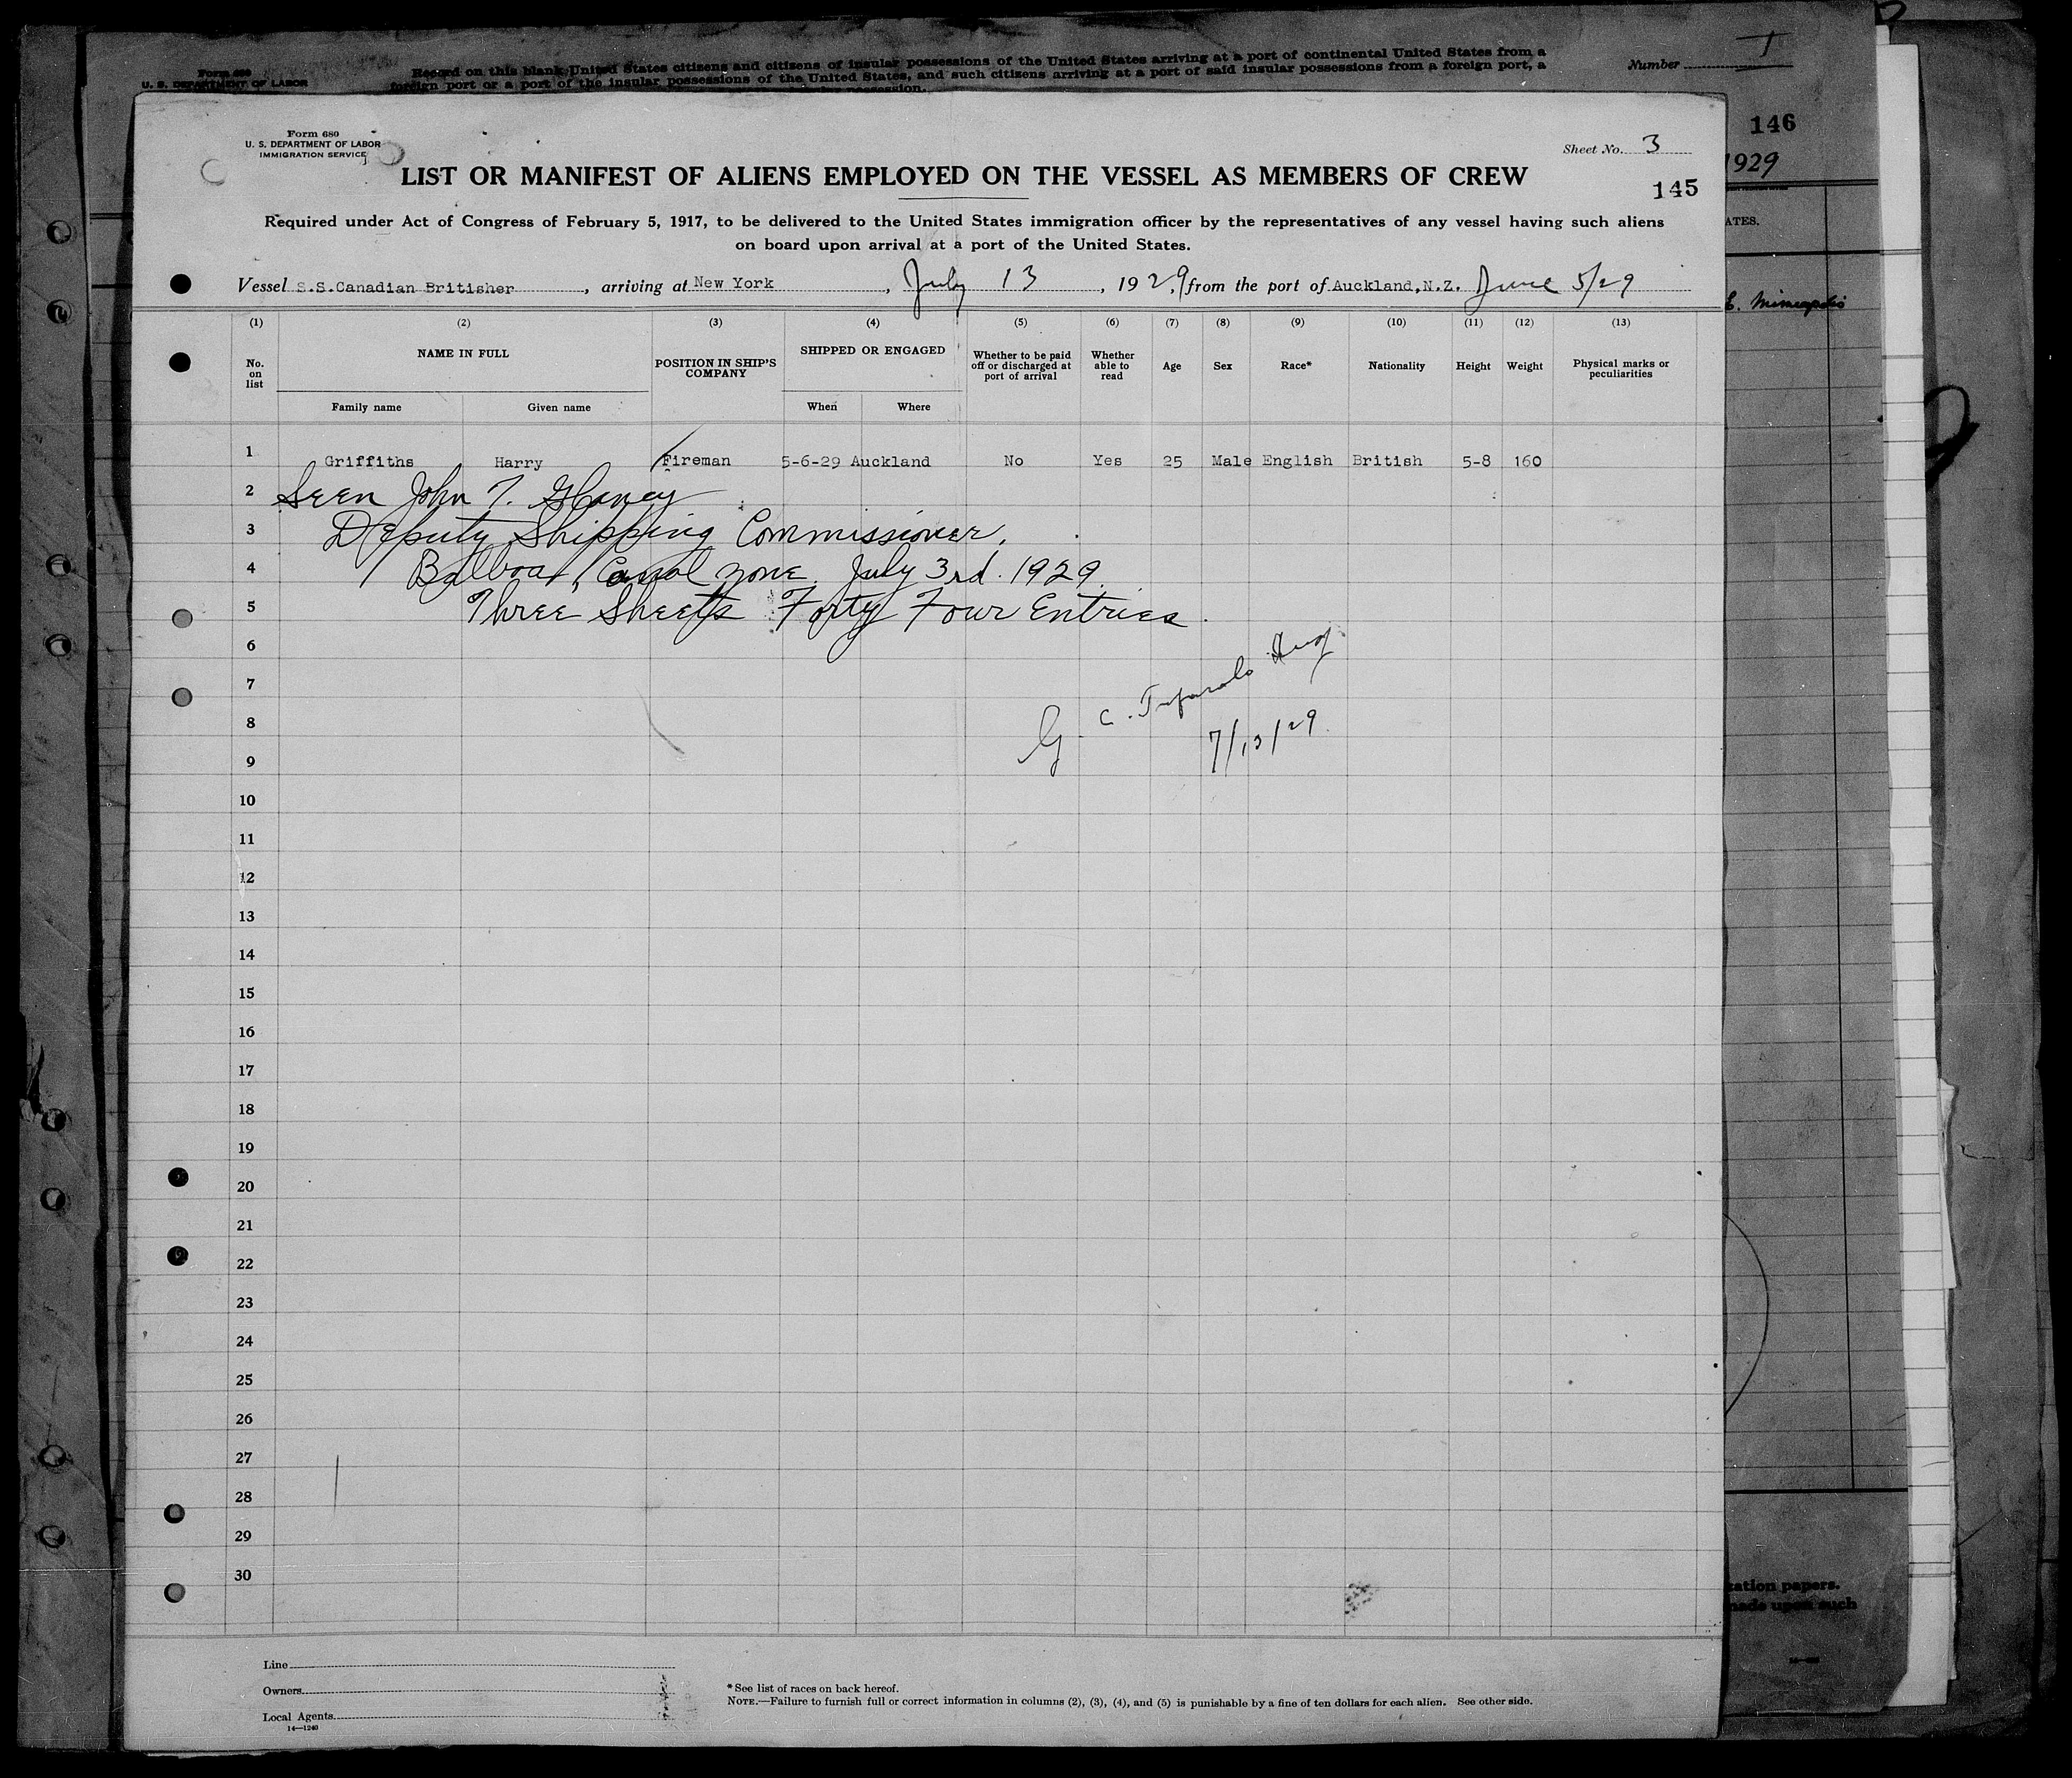 Form 680
U. S. DEPARTMENT OF LABOR
Record on this blank United States citizens and citizens of insular possessions of the United States arriving at a port of continental United States from a
foreign port or a port of the insular possessions of the United States, and such citizens arriving at a port of said insular possessions from a foreign port, a
possession.
Number I
146
1929
ATES.
E. Minneapolis
Form 680
U. S. DEPARTMENT OF LABOR
IMMIGRATION SERVICE
Sheet No. 3
LIST OR MANIFEST OF ALIENS EMPLOYED ON THE VESSEL AS MEMBERS OF CREW
145
Required under Act of Congress of February 5, 1917, to be delivered to the United States immigration officer by the representatives of any vessel having such aliens
on board upon arrival at a port of the United States.
Vessel S.S.Canadian Britisher, arriving at New York, July 13, 1929, from the port of Auckland,N.Z. June 5/29
(1) (2) (3) (4) (5) (6) (7) (8) (9) (10) (11) (12) (13)
No. on list NAME IN FULL POSITION IN SHIP'S COMPANY SHIPPED OR ENGAGED Whether to be paid off or discharged at port of arrival Whether able to read Age Sex Race* Nationality Height Weight Physical marks or peculiarities
Family name Given name When Where
1 Griffiths Harry Fireman 5-6-29 Auckland No Yes 25 Male English British 5-8 160
2 Seen John T.
3 Deputy Shipping Commissioner.
4 Balboa, Canal Zone. July 3rd. 1929.
5 Three Sheets Forty Four Entries.
6
7
8 G. C.
7/13/29
9
10
11
12
13
14
15
16
17
18
19
20
21
22
23
24
25
26
27
28
29
30
tation papers.
made upon such
Line
Owners
Local Agents
14—1240
*See list of races on back hereof.
NOTE.—Failure to furnish full or correct information in columns (2), (3), (4), and (5) is punishable by a fine of ten dollars for each alien. See other side.